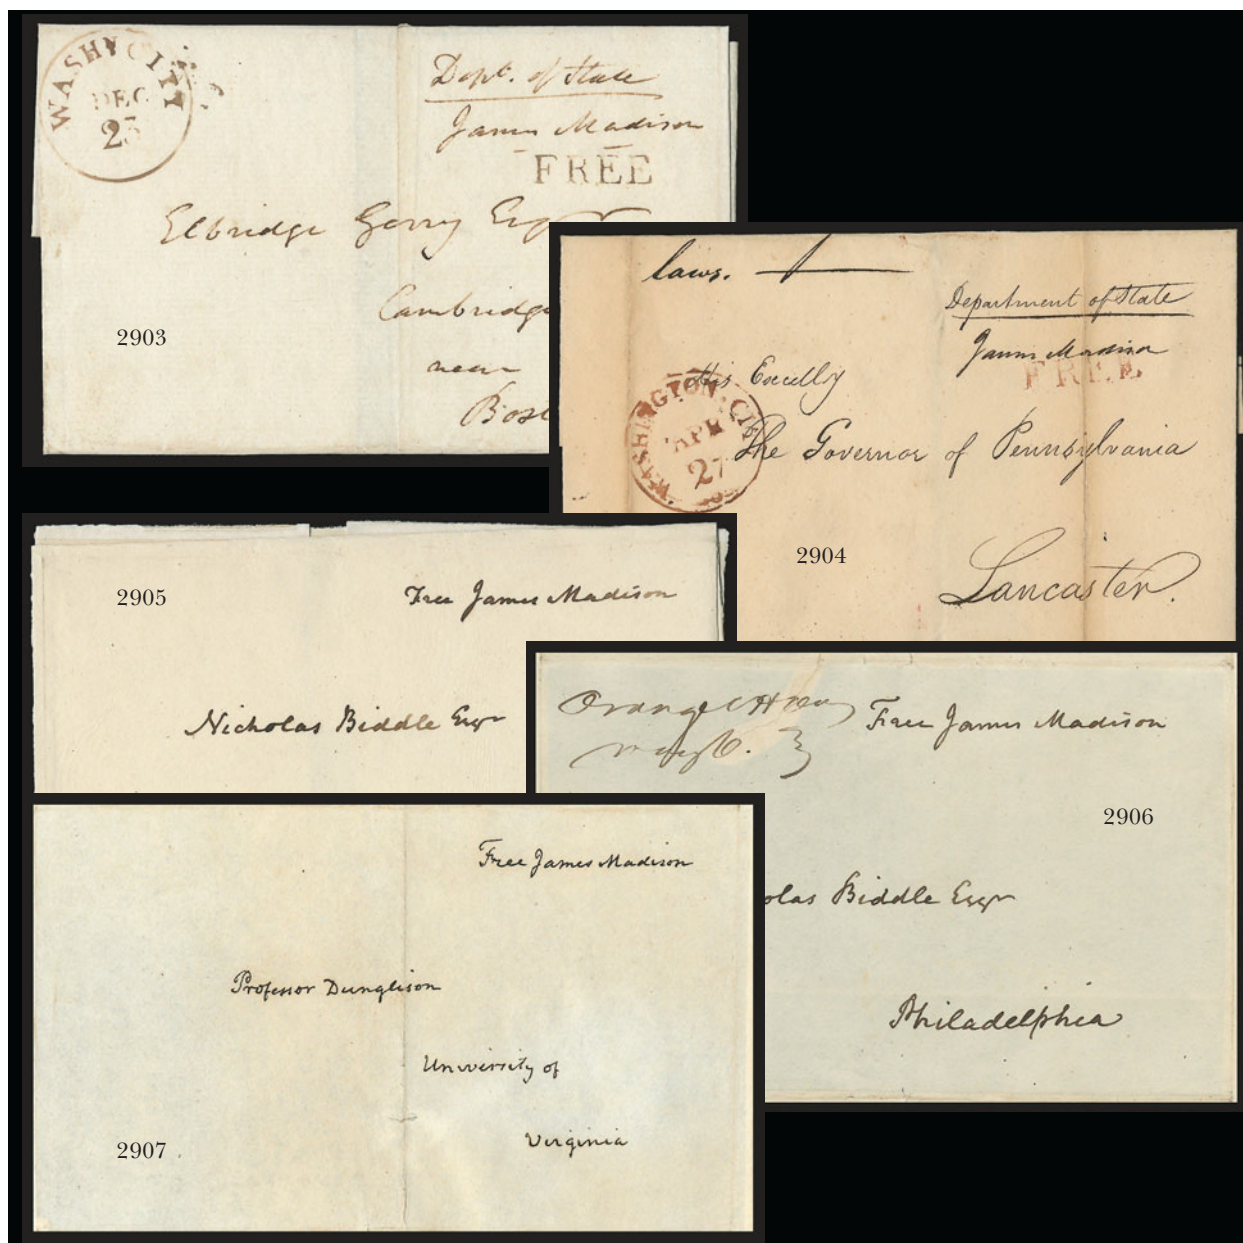 WASHN CITY
DEC
23
Dept. of State
James Madison
FREE
Elbridge Gerry Esqr
Cambridge
near
Bost
2903
laws.
Department of State
James Madison
FREE
His Excelly
WASHINGTON. CITY
APR
27
The Governor of Pennsylvania
2904
Lancaster.
2905
Free James Madison
Nicholas Biddle Esqr
Orange CH
Free James Madison
2906
olas Biddle Esqr
Philadelphia
Free James Madison
Professor Dunglison
University of
Virginia
2907